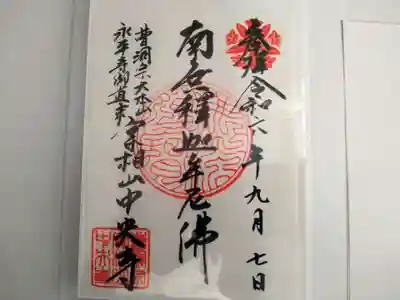 奉拝 令和六年九月七日
南无釋迦牟尼佛
曹洞宗大本山
永平寺御直末
実相山中央寺